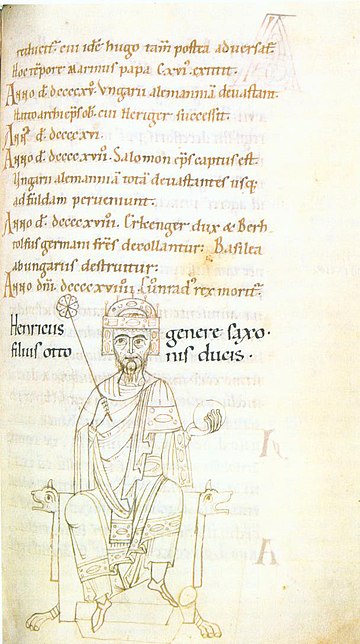 reducit[ur]. cui idē hugo tam̄ postea adversat̄
Hoc tēpore Marinus papa CXVI. extitit.
Anno dī. dccccxv. Ungarii alemanniā devastant.
Hatto archiep̄s ob̄. cui Heriger successit.
Anno dī. dccccxvi.
Anno dī. dccccxvii. Salomon ep̄s captus est.
Ungarii alemanniā totā devastantes usq;
ad fuldam pervenīunt.
Anno dī. dccccxviii. Erkenger dux & Berh
tolfus germani frēs decollantur: Basilea
ab ungariis destruitur:
Anno dn̄i. dccccxviiii. Cuonrad' rex morit̄.
Henricus genere saxo.
filius otto nis ducis.